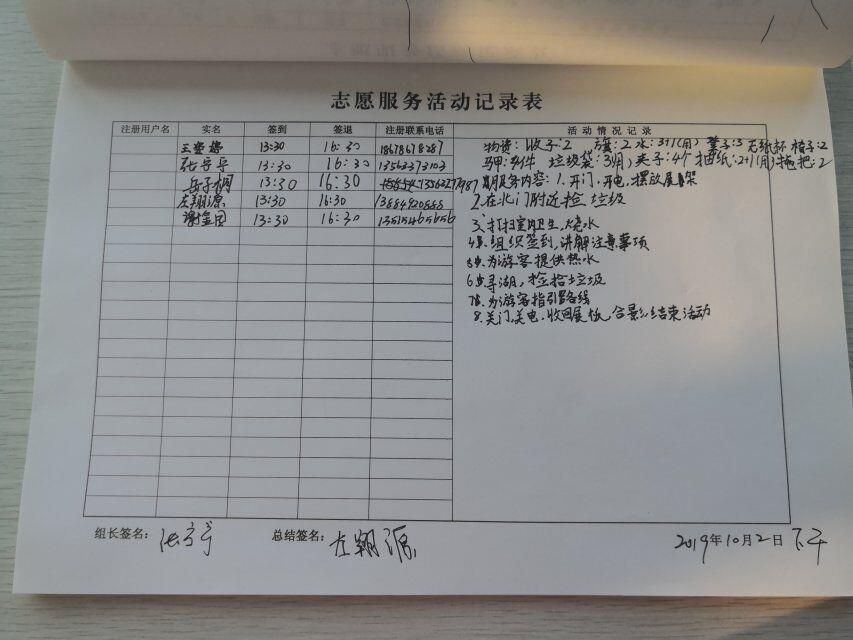 志愿服务活动记录表
注册用户名 实名 签到 签退 注册联系电话 活动情况记录
13:30 16:30 18678678287
张 13:30 16:30 13563373103
岳子桐 13:30 16:30 13562277987
左翔源 13:30 16:30 13884920888
谢 13:30 16:30 13515465656
物资：收子:2 旗:2 水:3+1(月) 凳子:3 无纸杯 椅子:2
马甲:9件 垃圾袋:3(月) 夹子:4个 抽纸:2+1(月) 拖把:2
服务内容：1.开门,开电,摆放展架
2.在北门附近捡垃圾
3.打扫室内卫生,烧水
4.组织签到,讲解注意事项
为游客提供热水
6 寻湖,捡拾垃圾
7 为游客指引路线
8.关门,关电,收回展板,合影,结束活动
组长签名： 张
总结签名： 左翔源
2019年10月2日 下午